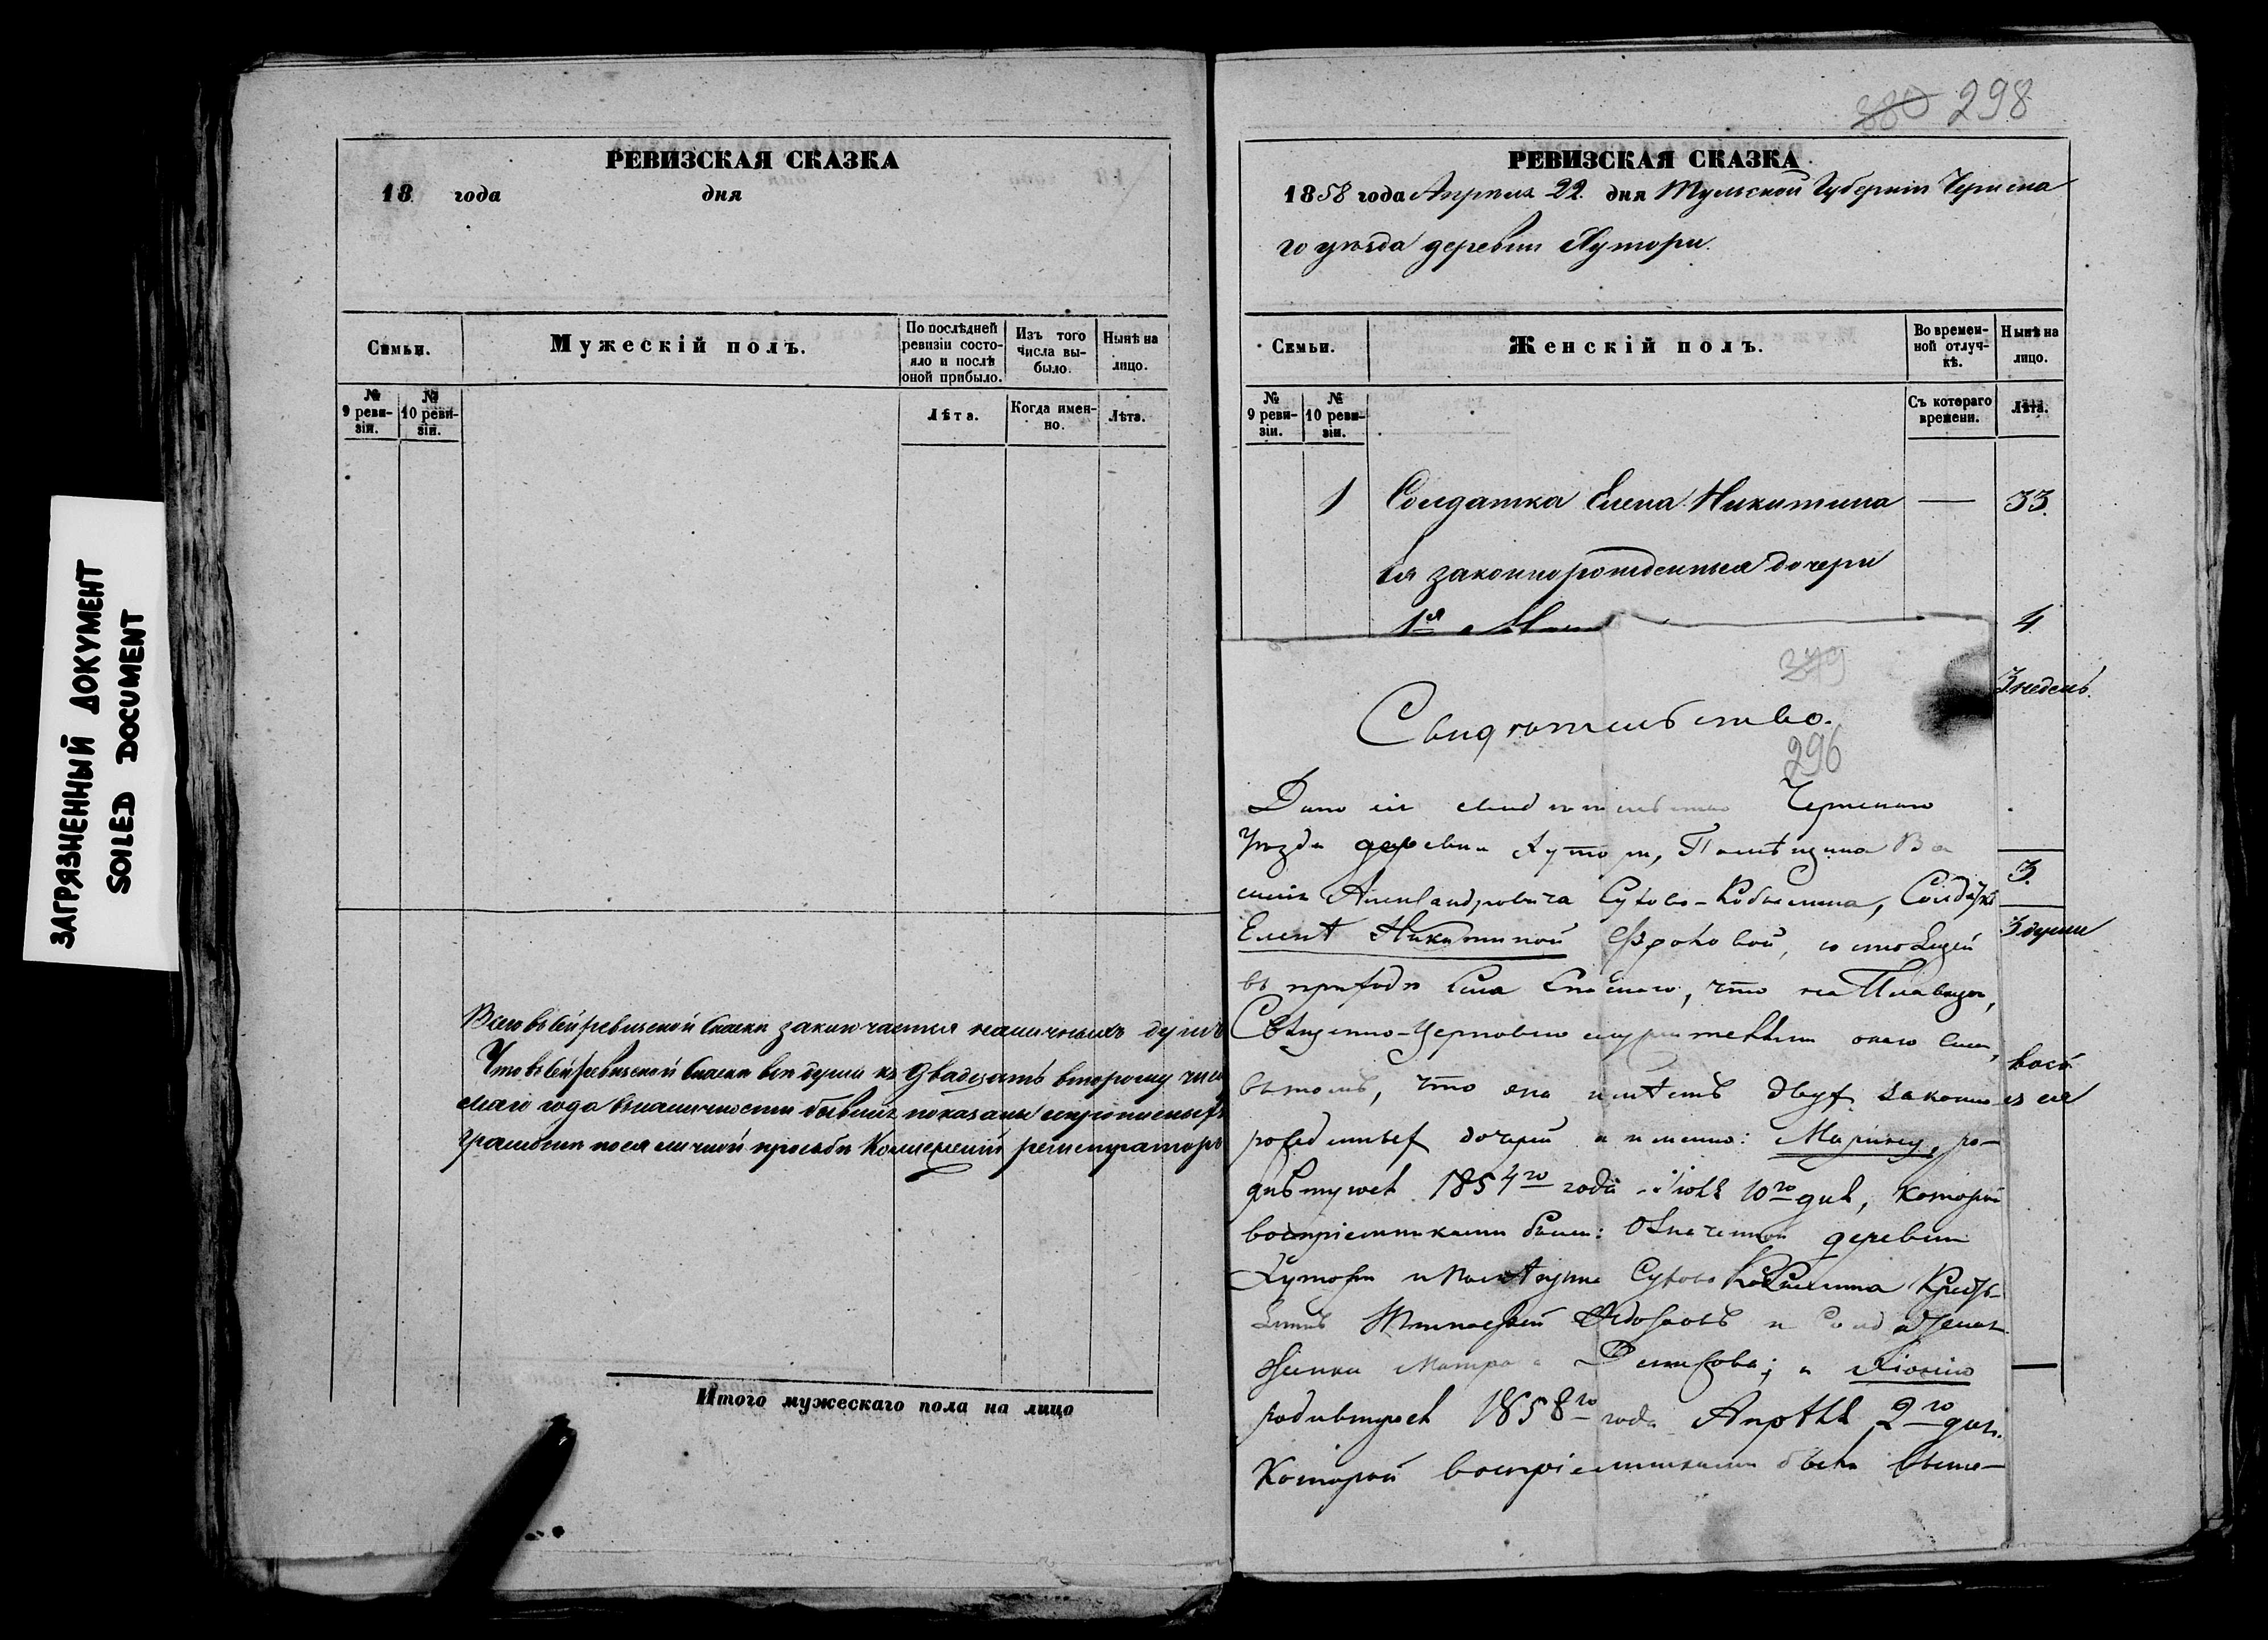 ЗАГРЯЗНЕННЫЙ ДОКУМЕНТ
SOILED DOCUMENT
РЕВИЗСКАЯ СКАЗКА
18 года дня
Семьи.
Мужескій полъ.
По послѣдней
ревизіи состо-
яло и послѣ
оной прибыло.
Изъ того
числа вы-
было.
Нынѣ на
лицо.
№
9 реви-
зіи.
№
10 реви-
зіи.
Лѣта.
Когда имен-
но.
Лѣта.
Всего въ сей ревизской сказки заключается наличныхъ душъ
Что въ сей ревизской сказки все души къ двадцать второму числ
сего года въ наличности бывшіе показаны
грамоти по ея личной прозьбѣ Коллежскій регистраторъ
Итого мужескаго пола на лицо
380 298
РЕВИЗСКАЯ СКАЗКА.
1858 года Апреля 22. дня Тульской Губерніи Чернска
го уѣзда деревни Хутори.
Семьи.
Женскій полъ.
Во времен-
ной отлуч-
кѣ.
Нынѣ на
лицо.
№
9 реви-
зіи.
№
10 реви-
зіи.
Съ котораго
времени.
Лѣта.
1 Солдатка Елена Никитина — 33.
Ея законнорожденныя дочери
1я 4.
3 недель.
3.
3 души
379
Свидѣтельство.
296
Дано сіе свидѣтельство Чернскаго
Уѣзда деревни Хутори, Помѣщика Ва
силія Александровича Сухово-Кобылина, Солдаткѣ
Еленѣ Никитиной Фроловой, состоящей
въ приходѣ Села Спаскаго, что на Плавицѣ,
Священно-Церковно служителями онаго села,
въ томъ, что она имѣетъ двухъ законно
рожденныхъ дочерей а именно: Марину, ро-
дившуюся 1854го года Іюля 10го дня, которой
воспріемниками были: Означенной деревни
Хутори и Помѣщика Сухово Кобылина Кресть-
янинъ и Солдатская
женка Матрона Денисова; и Ксенію
родившуюся 1858го года Апрѣля 2го дня.
Которой воспріемниками были выше-